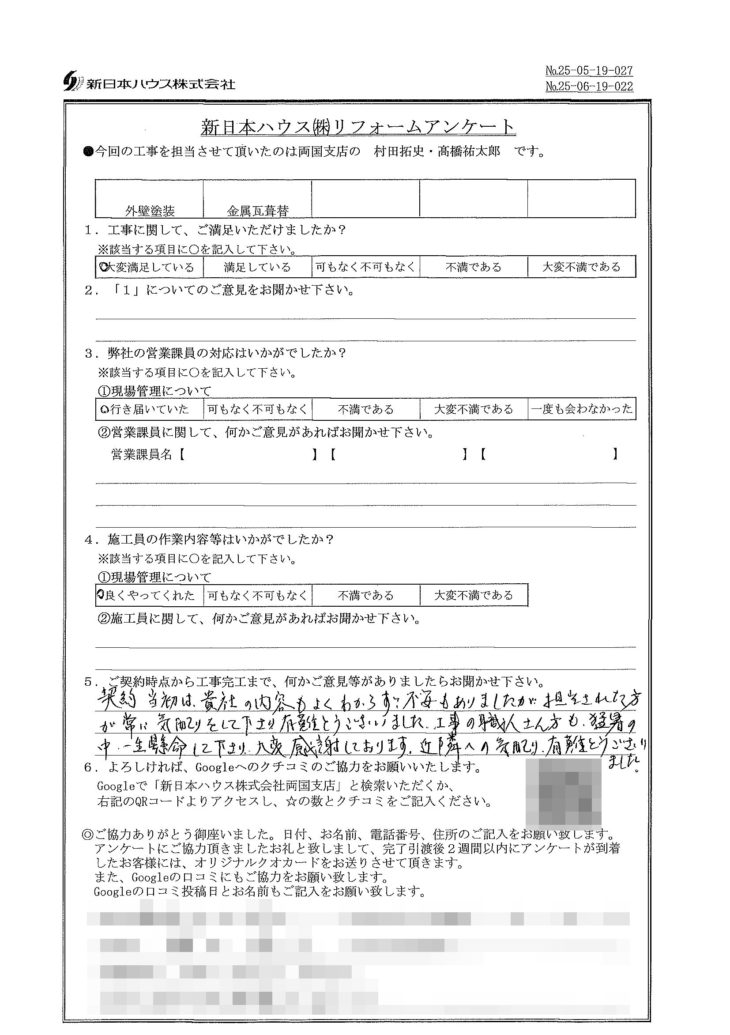 新日本ハウス株式会社
№25-05-19-027
№25-06-19-022
新日本ハウス㈱リフォームアンケート
●今回の工事を担当させて頂いたのは両国支店の 村田拓史・髙橋祐太郎 です。
外壁塗装 金属瓦葺替
1．工事に関して、ご満足いただけましたか？
※該当する項目に○を記入して下さい。
大変満足している 満足している 可もなく不可もなく 不満である 大変不満である
2．「1」についてのご意見をお聞かせ下さい。
3．弊社の営業課員の対応はいかがでしたか？
※該当する項目に○を記入して下さい。
①現場管理について
行き届いていた 可もなく不可もなく 不満である 大変不満である 一度も会わなかった
②営業課員に関して、何かご意見があればお聞かせ下さい。
営業課員名【 】【 】【 】
4．施工員の作業内容等はいかがでしたか？
※該当する項目に○を記入して下さい。
①現場管理について
良くやってくれた 可もなく不可もなく 不満である 大変不満である
②施工員に関して、何かご意見があればお聞かせ下さい。
5．ご契約時点から工事完工まで、何かご意見等がありましたらお聞かせ下さい。
契約当初は、貴社の内容もよくわからず、不安もありましたが担当された方
が常に気配りをして下さり有難とうございました。工事の職人さん方も、猛暑の
中一生懸命して下さり、大変感謝しております。近隣への気配り、有難とうござい
ました。
6．よろしければ、Googleへのクチコミのご協力をお願いいたします。
Googleで「新日本ハウス株式会社両国支店」と検索いただくか、
右記のQRコードよりアクセスし、☆の数とクチコミをご記入ください。
◎ご協力ありがとう御座いました。日付、お名前、電話番号、住所のご記入をお願い致します。
アンケートにご協力頂きましたお礼と致しまして、完了引渡後２週間以内にアンケートが到着
したお客様には、オリジナルクオカードをお送りさせて頂きます。
また、Googleの口コミにもご協力をお願い致します。
Googleの口コミ投稿日とお名前もご記入をお願い致します。